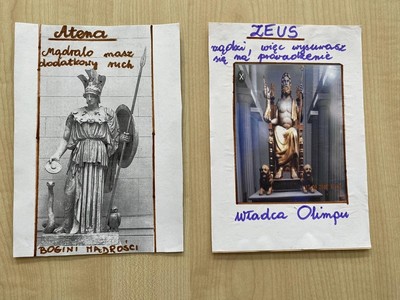 Atena
Mądralo masz
dodatkowy ruch
BOGINI MĄDROŚCI
ZEUS
rządzi, więc wysuwasz
się na prowadzenie
X
władca Olimpu